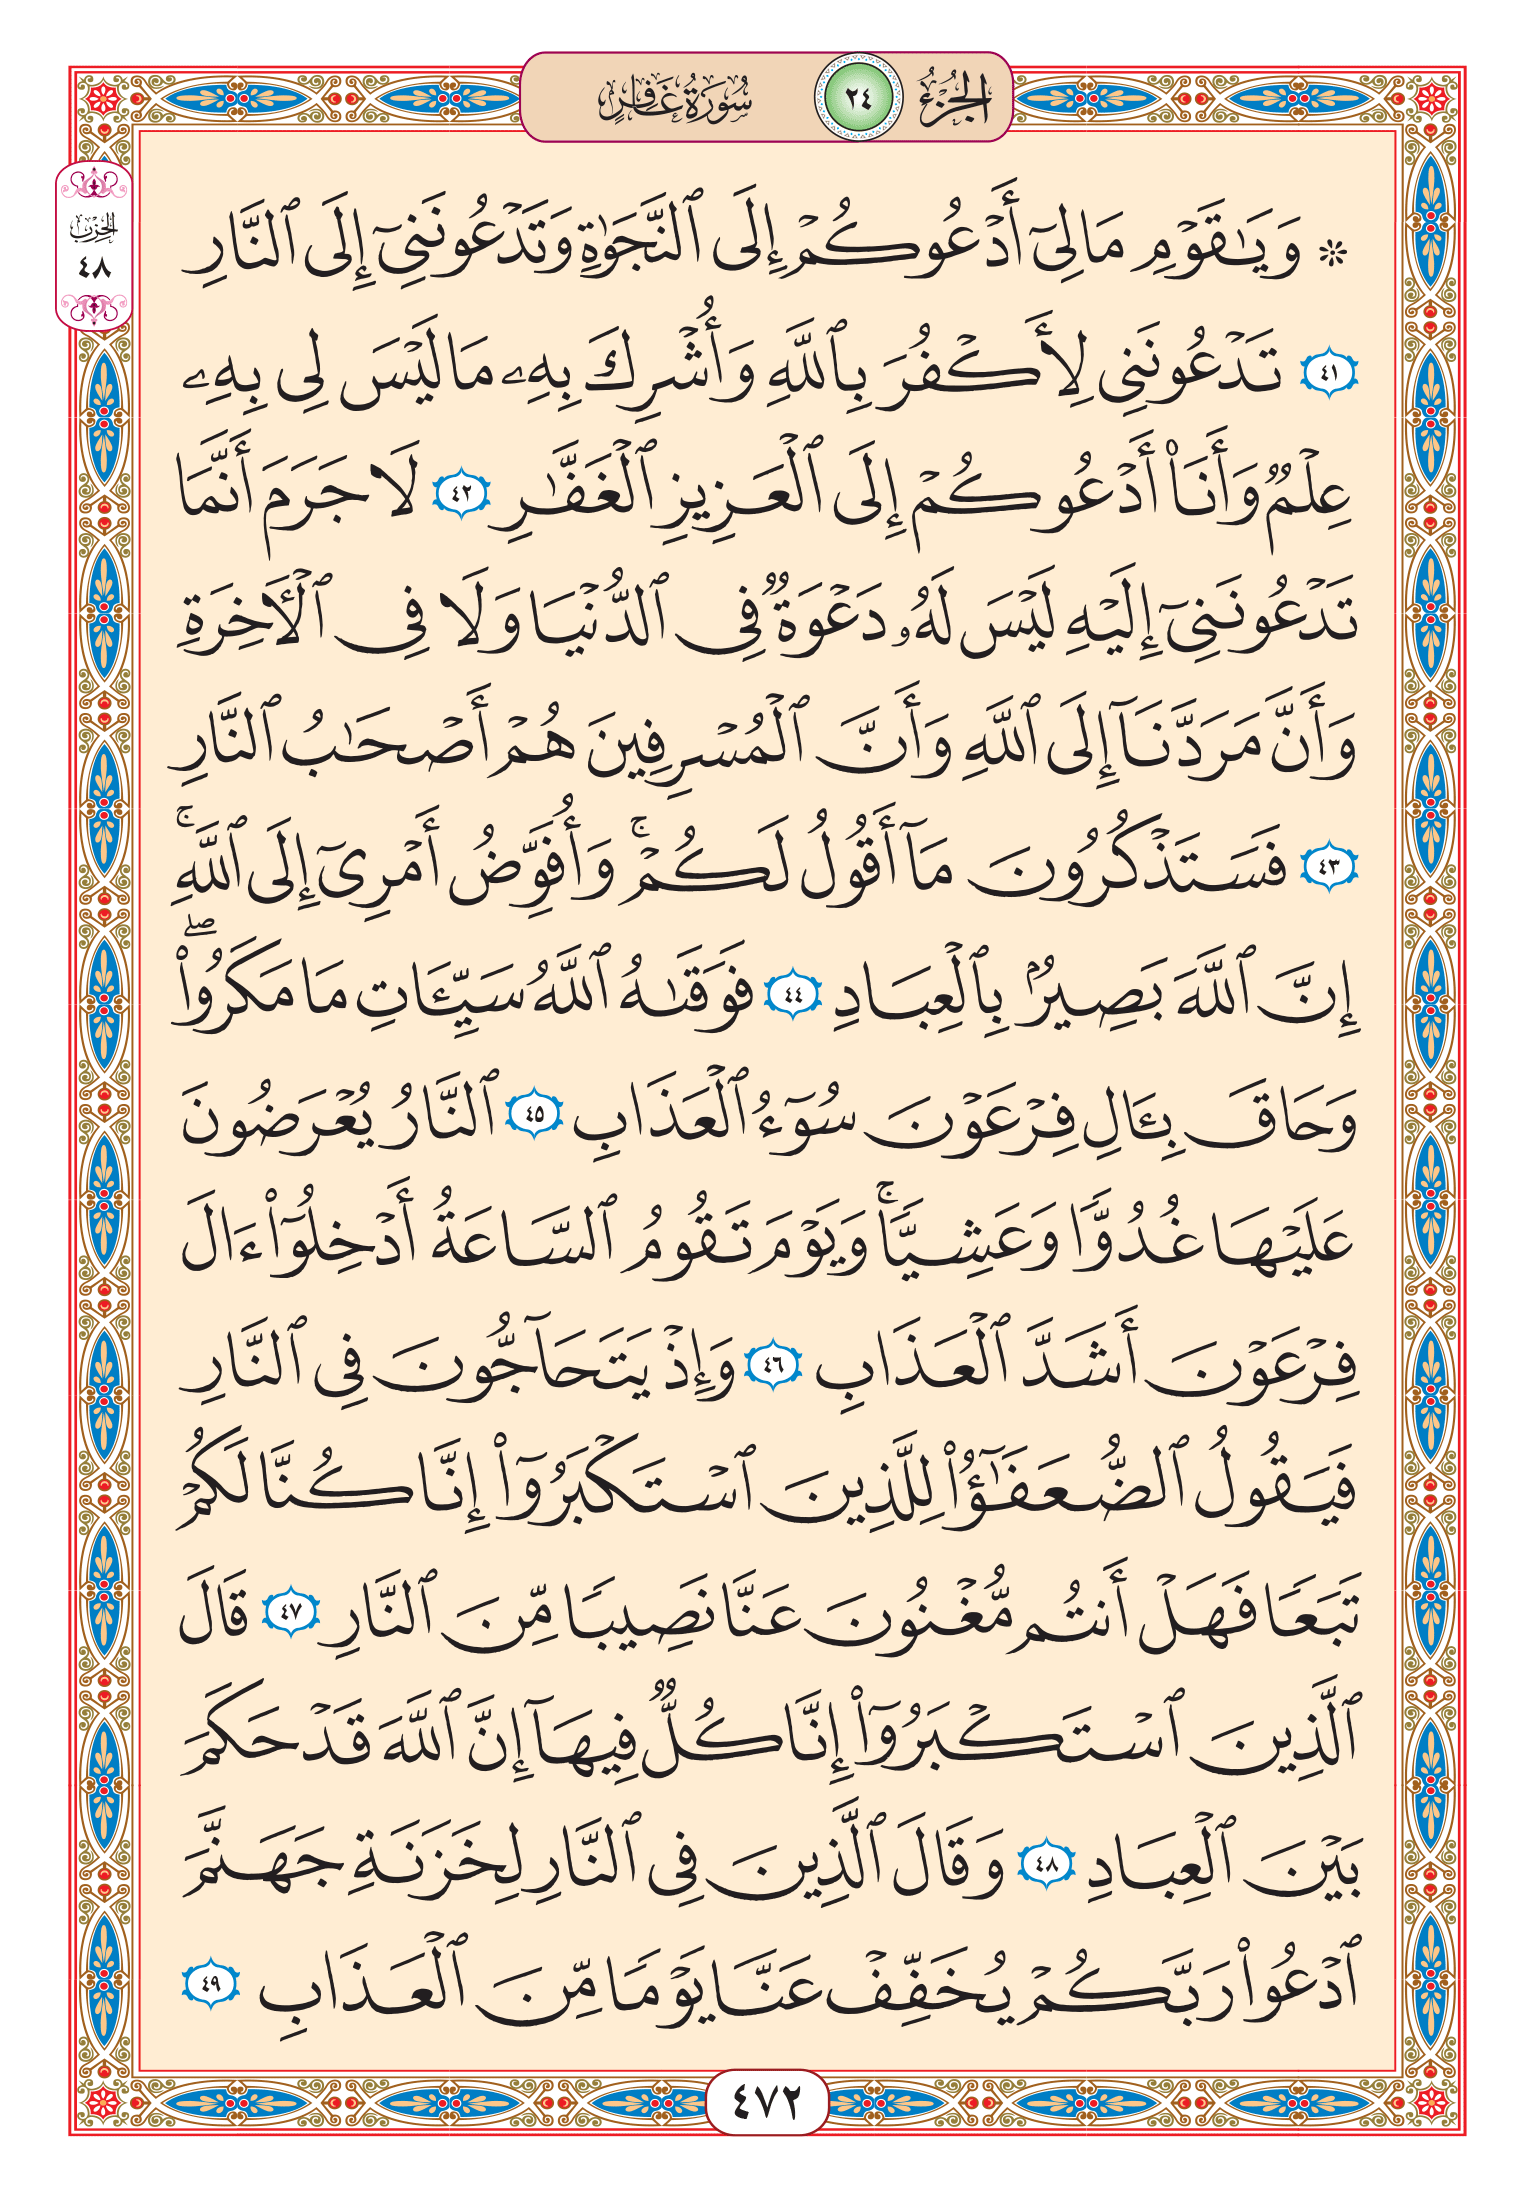 الجزء ٢٤ سورة غافر
الحزب
٤٨
۞ وَيَـٰقَوْمِ مَا لِىٓ أَدْعُوكُمْ إِلَى ٱلنَّجَوٰةِ وَتَدْعُونَنِىٓ إِلَى ٱلنَّارِ
٤١ تَدْعُونَنِى لِأَكْفُرَ بِٱللَّهِ وَأُشْرِكَ بِهِۦ مَا لَيْسَ لِى بِهِۦ
عِلْمٌ وَأَنَا۠ أَدْعُوكُمْ إِلَى ٱلْعَزِيزِ ٱلْغَفَّـٰرِ ٤٢ لَا جَرَمَ أَنَّمَا
تَدْعُونَنِىٓ إِلَيْهِ لَيْسَ لَهُۥ دَعْوَةٌ فِى ٱلدُّنْيَا وَلَا فِى ٱلْـَٔاخِرَةِ
وَأَنَّ مَرَدَّنَآ إِلَى ٱللَّهِ وَأَنَّ ٱلْمُسْرِفِينَ هُمْ أَصْحَـٰبُ ٱلنَّارِ
٤٣ فَسَتَذْكُرُونَ مَآ أَقُولُ لَكُمْ ۚ وَأُفَوِّضُ أَمْرِىٓ إِلَى ٱللَّهِ ۚ
إِنَّ ٱللَّهَ بَصِيرٌۢ بِٱلْعِبَادِ ٤٤ فَوَقَىٰهُ ٱللَّهُ سَيِّـَٔاتِ مَا مَكَرُوا۟ ۖ
وَحَاقَ بِـَٔالِ فِرْعَوْنَ سُوٓءُ ٱلْعَذَابِ ٤٥ ٱلنَّارُ يُعْرَضُونَ
عَلَيْهَا غُدُوًّا وَعَشِيًّا ۚ وَيَوْمَ تَقُومُ ٱلسَّاعَةُ أَدْخِلُوٓا۟ ءَالَ
فِرْعَوْنَ أَشَدَّ ٱلْعَذَابِ ٤٦ وَإِذْ يَتَحَآجُّونَ فِى ٱلنَّارِ
فَيَقُولُ ٱلضُّعَفَـٰٓؤُا۟ لِلَّذِينَ ٱسْتَكْبَرُوٓا۟ إِنَّا كُنَّا لَكُمْ
تَبَعًا فَهَلْ أَنتُم مُّغْنُونَ عَنَّا نَصِيبًا مِّنَ ٱلنَّارِ ٤٧ قَالَ
ٱلَّذِينَ ٱسْتَكْبَرُوٓا۟ إِنَّا كُلٌّ فِيهَآ إِنَّ ٱللَّهَ قَدْ حَكَمَ
بَيْنَ ٱلْعِبَادِ ٤٨ وَقَالَ ٱلَّذِينَ فِى ٱلنَّارِ لِخَزَنَةِ جَهَنَّمَ
ٱدْعُوا۟ رَبَّكُمْ يُخَفِّفْ عَنَّا يَوْمًا مِّنَ ٱلْعَذَابِ ٤٩
٤٧٢